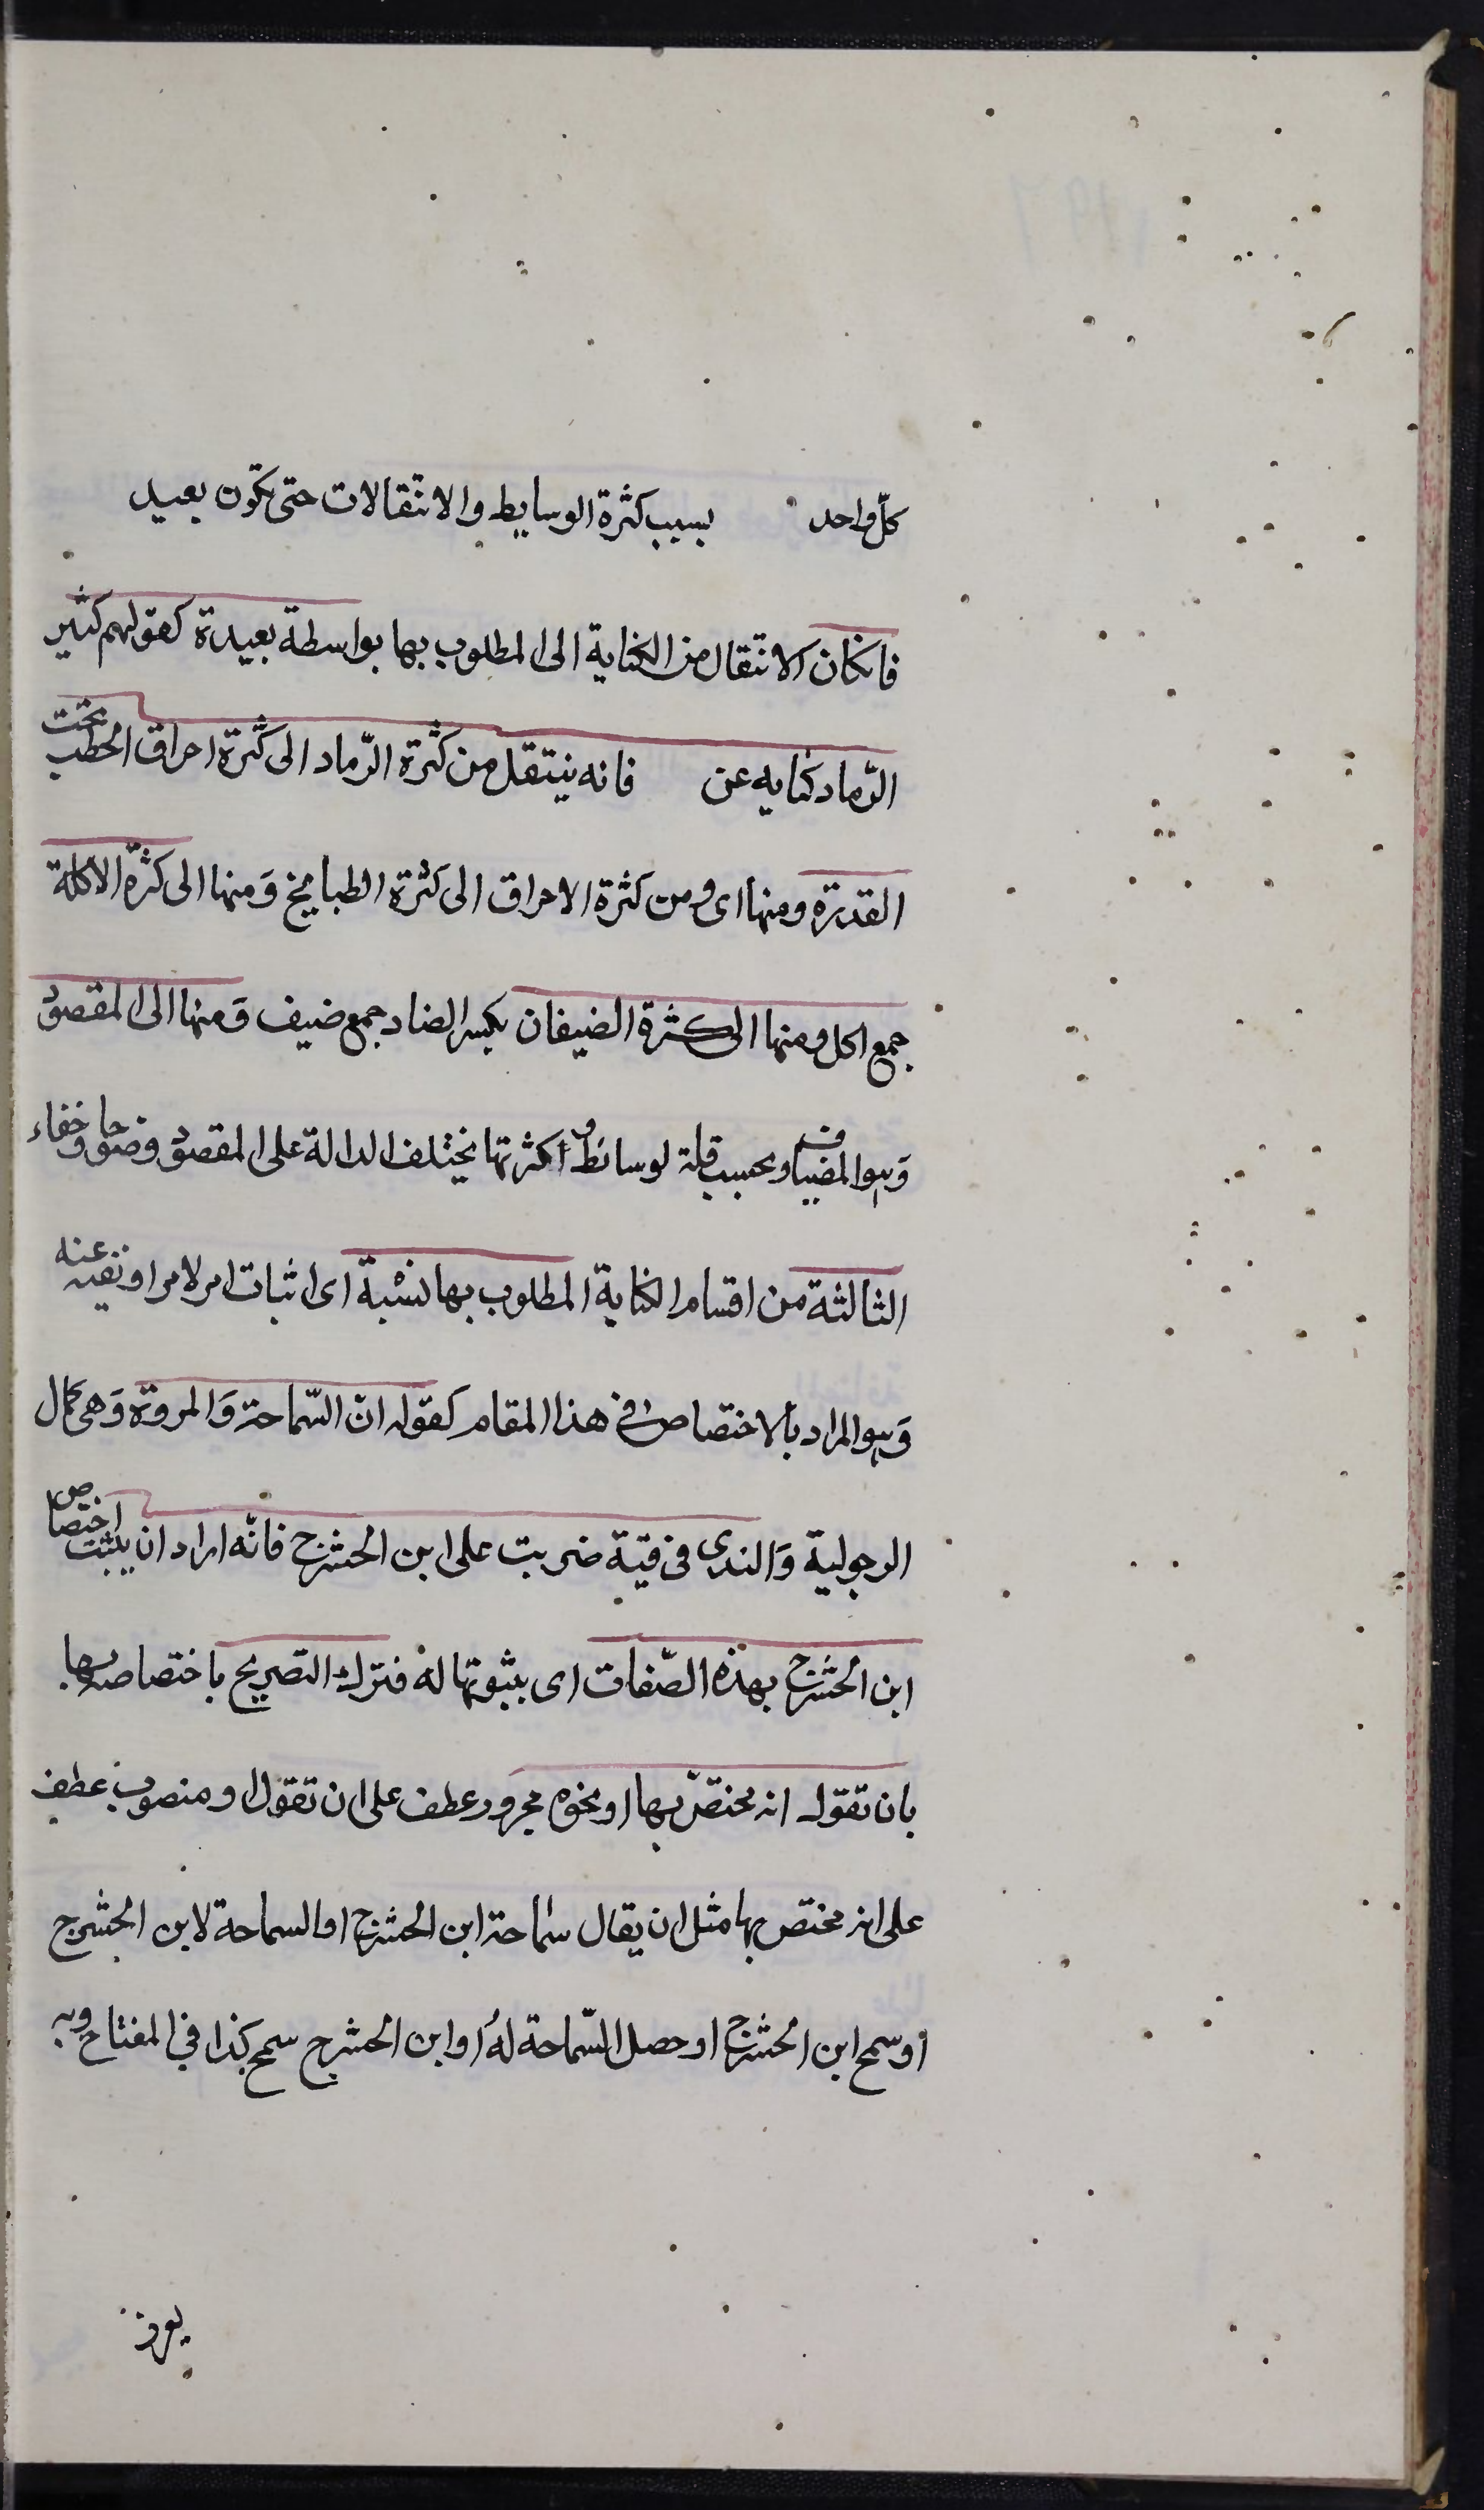 كلّ واحد بسبب كثرة الوسايط والانتقالات حتى تكون بعيد
فانكان الانتقال من الكناية الى المطلوب بها بواسطة بعيدة كقولهم كثير
الرّماد كنايه عن فانه ينتقل من كثرة الرّماد الى كثرة احراق الحطب تحت
القدرة ومنها اى ومن كثرة الاحراق الى كثرة الطبايخ وَمنها الى كثرة الاكلة
جمع اكل ومنها الى كثرة الضيفان بكسر الضاد جمع ضيف وَمنها الى المقصود
وَهو المضياف وبحسب قلة لوسائط وأكثرتها يختلف الدالة على المقصود وضوحا وخفاء
الثالثة من اقسام الكناية المطلوب بها نسْبة اى اثبات امر لامر او نفيه عنه
وَهو المراد بالاختصاص فى هذا المقام كقوله انّ السّماحة وَالمروة وَهى كمال
الرجولية وَالندى فى قبة ضربت على ابن الحشرج فانّه اراد ان يثبت اختصاص
ابن الحشرج بهذه الصّفات اى بثبوتها له فترك التصريح باختصاصه بها
بان تقول انه مختصّ بها او نحوه مجرور عطف على ان تقول او منصوب عطف
على انه مختص بها مثل ان يقال سماحة ابن الحشرج او السماحة لابن الحشرج
او سمح ابن الحشرج او حصل السّماحة لهُ او ابن الحشرج سمح كذا فى المفتاح وبه
يعرف